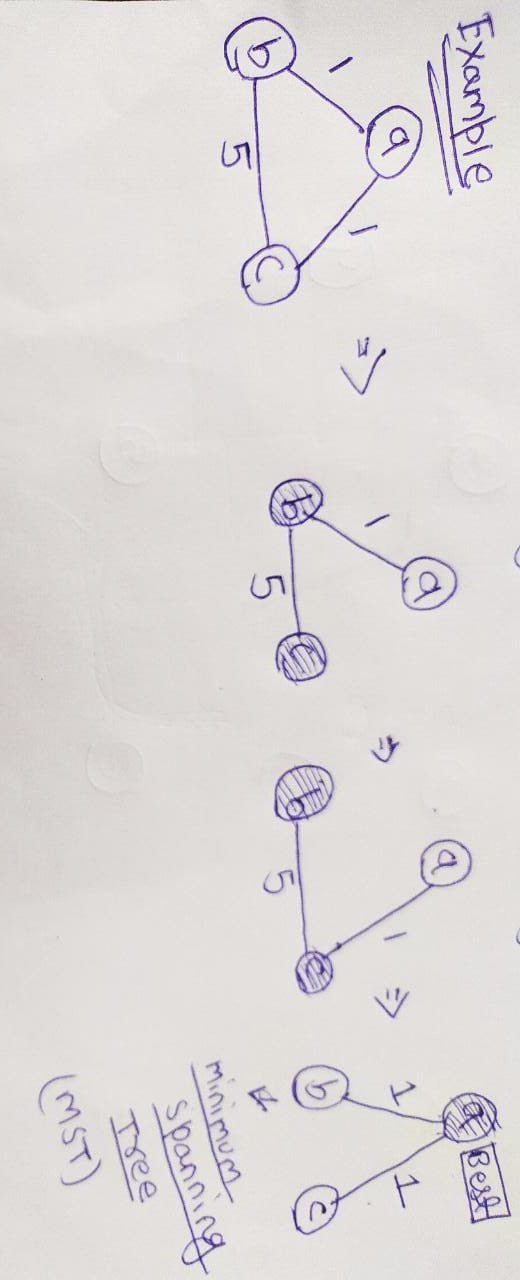 Example
a
1
1
b
c
5
=>
a
1
b
c
5
=>
a
1
b
c
5
=>
a
Best
1
1
b
c
minimum
spanning
Tree
(MST)